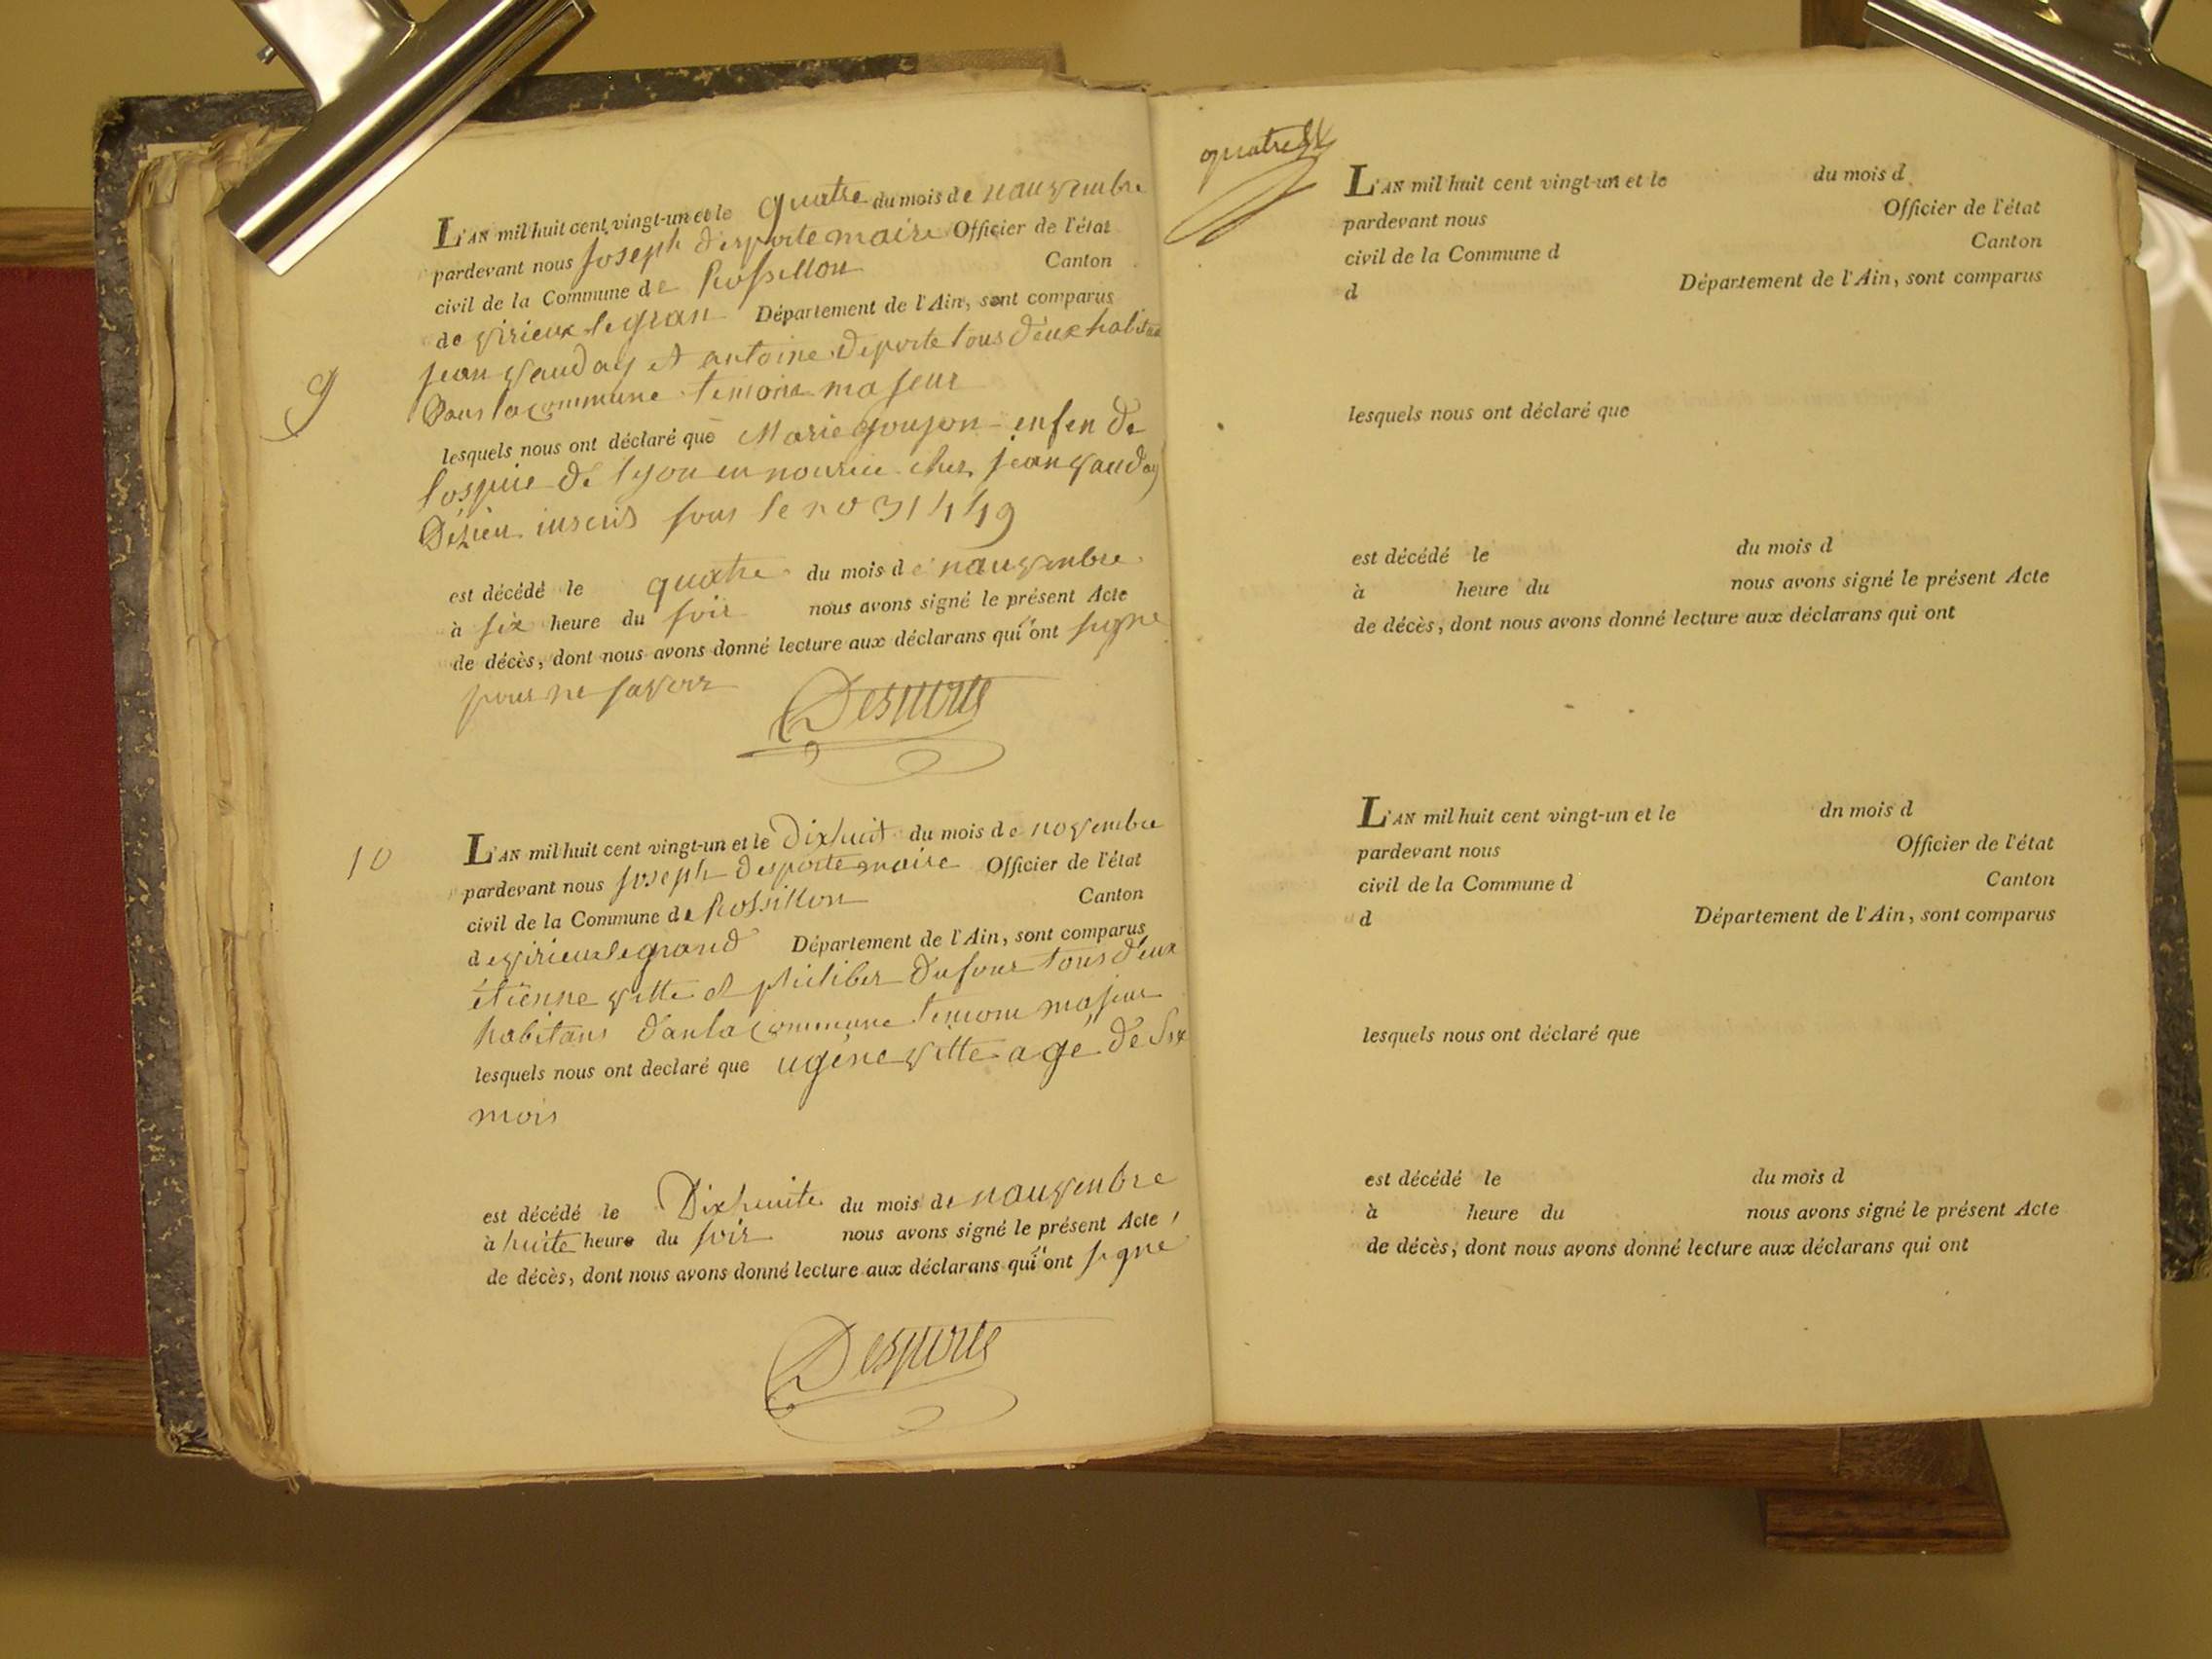 L'AN mil huit cent vingt-un et le quatre du mois de nauvembre
pardevant nous joseph desporte maire Officier de l'état
civil de la Commune de Rossillon Canton
de virieux le gran Département de l'Ain, sont comparus
9
jean vauday et antoine deporte tous deux habitan
Dans la commune temoins majeur
lesquels nous ont déclaré que Marie goujon enfen de
losguie de lyon en nourice chez jean vauday
Dézieu inscris sous le no 31449
est décédé le quatre du mois de nauvembre
à six heure du soir nous avons signé le présent Acte
de décès, dont nous avons donné lecture aux déclarans qui ont signe
pour ne savoir
Desporte
10
L'AN mil huit cent vingt-un et le Dixhuit du mois de novembre
pardevant nous joseph desporte maire Officier de l'état
civil de la Commune de Rossillon Canton
de virieu le grand Département de l'Ain, sont comparus
étienne vitte et philiber dufour tous deux
habitans dan la commune temoin majeur
lesquels nous ont declaré que ugene vitte age de Six
mois
est décédé le Dixhuite du mois de nauvenbre
à huite heure du soir nous avons signé le présent Acte
de décès, dont nous avons donné lecture aux déclarans qui ont signe
Desporte
L'AN mil huit cent vingt-un et le du mois d
pardevant nous Officier de l'état
civil de la Commune d Canton
d Département de l'Ain, sont comparus
lesquels nous ont déclaré que
est décédé le du mois d
à heure du nous avons signé le présent Acte
de décès, dont nous avons donné lecture aux déclarans qui ont
L'AN mil huit cent vingt-un et le dn mois d
pardevant nous Officier de l'état
civil de la Commune d Canton
d Département de l'Ain, sont comparus
lesquels nous ont déclaré que
est décédé le du mois d
à heure du nous avons signé le présent Acte
de décès, dont nous avons donné lecture aux déclarans qui ont